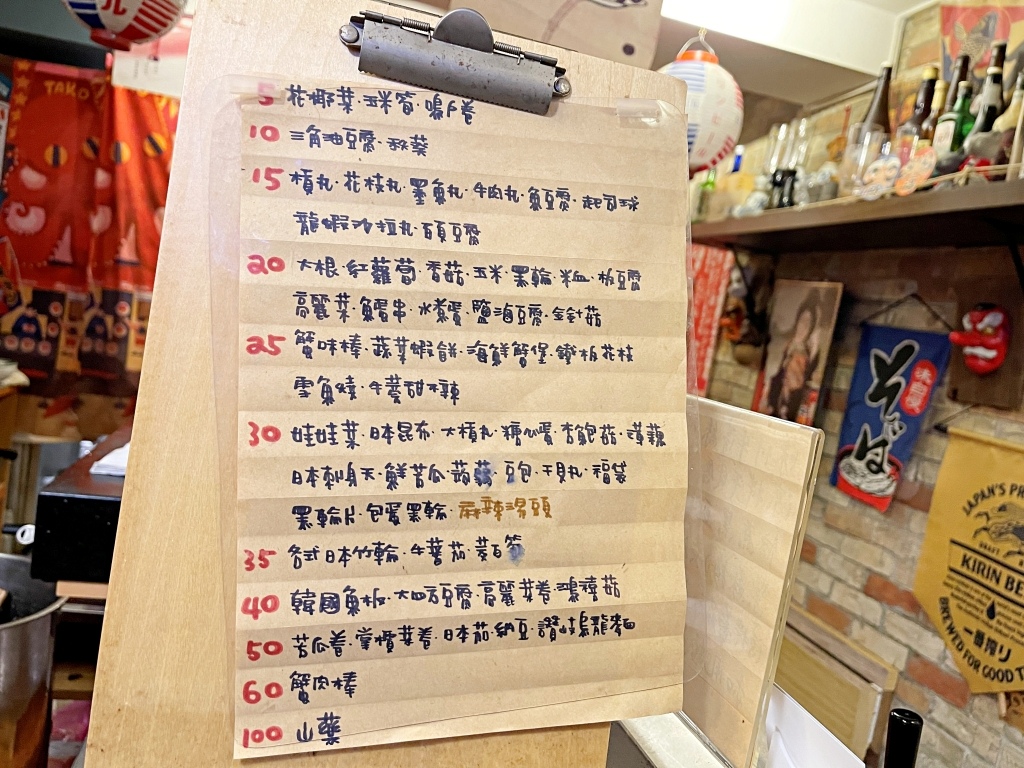 ル
TAKO
5 花椰菜·玉米筍·鳴戶卷
10 三角油豆腐·秋葵
15 槓丸·花枝丸·墨魚丸·牛肉丸·魚豆腐·起司球
龍蝦沙拉丸·百頁豆腐
20 大根·紅蘿蔔·香菇·玉米·黑輪·米血·板豆腐
高麗菜·鱈魚串·水煮蛋·鹽滷豆腐·金針菇
25 蟹味棒·蔬菜蝦餅·海鮮蟹堡·鐵板花枝
雪魚燒·牛蒡甜不辣
30 娃娃菜·日本昆布·大槓丸·糖心蛋·杏鮑菇·蓮藕
日本刺身天·鮮苦瓜·蒟蒻·豆包·干貝丸·福袋
黑輪片·包蛋黑輪·麻辣湯頭
35 各式日本竹輪·牛蕃茄·茭白筍
40 韓國魚板·大四方豆腐·高麗菜卷·鴻禧菇
50 苦瓜卷·掌櫃菜卷·日本茄·納豆·讚岐烏龍麵
60 蟹肉棒
100 山藥
そば
JAPAN'S PR
KIRIN BE
一番搾り
BREWED FOR GOOD T